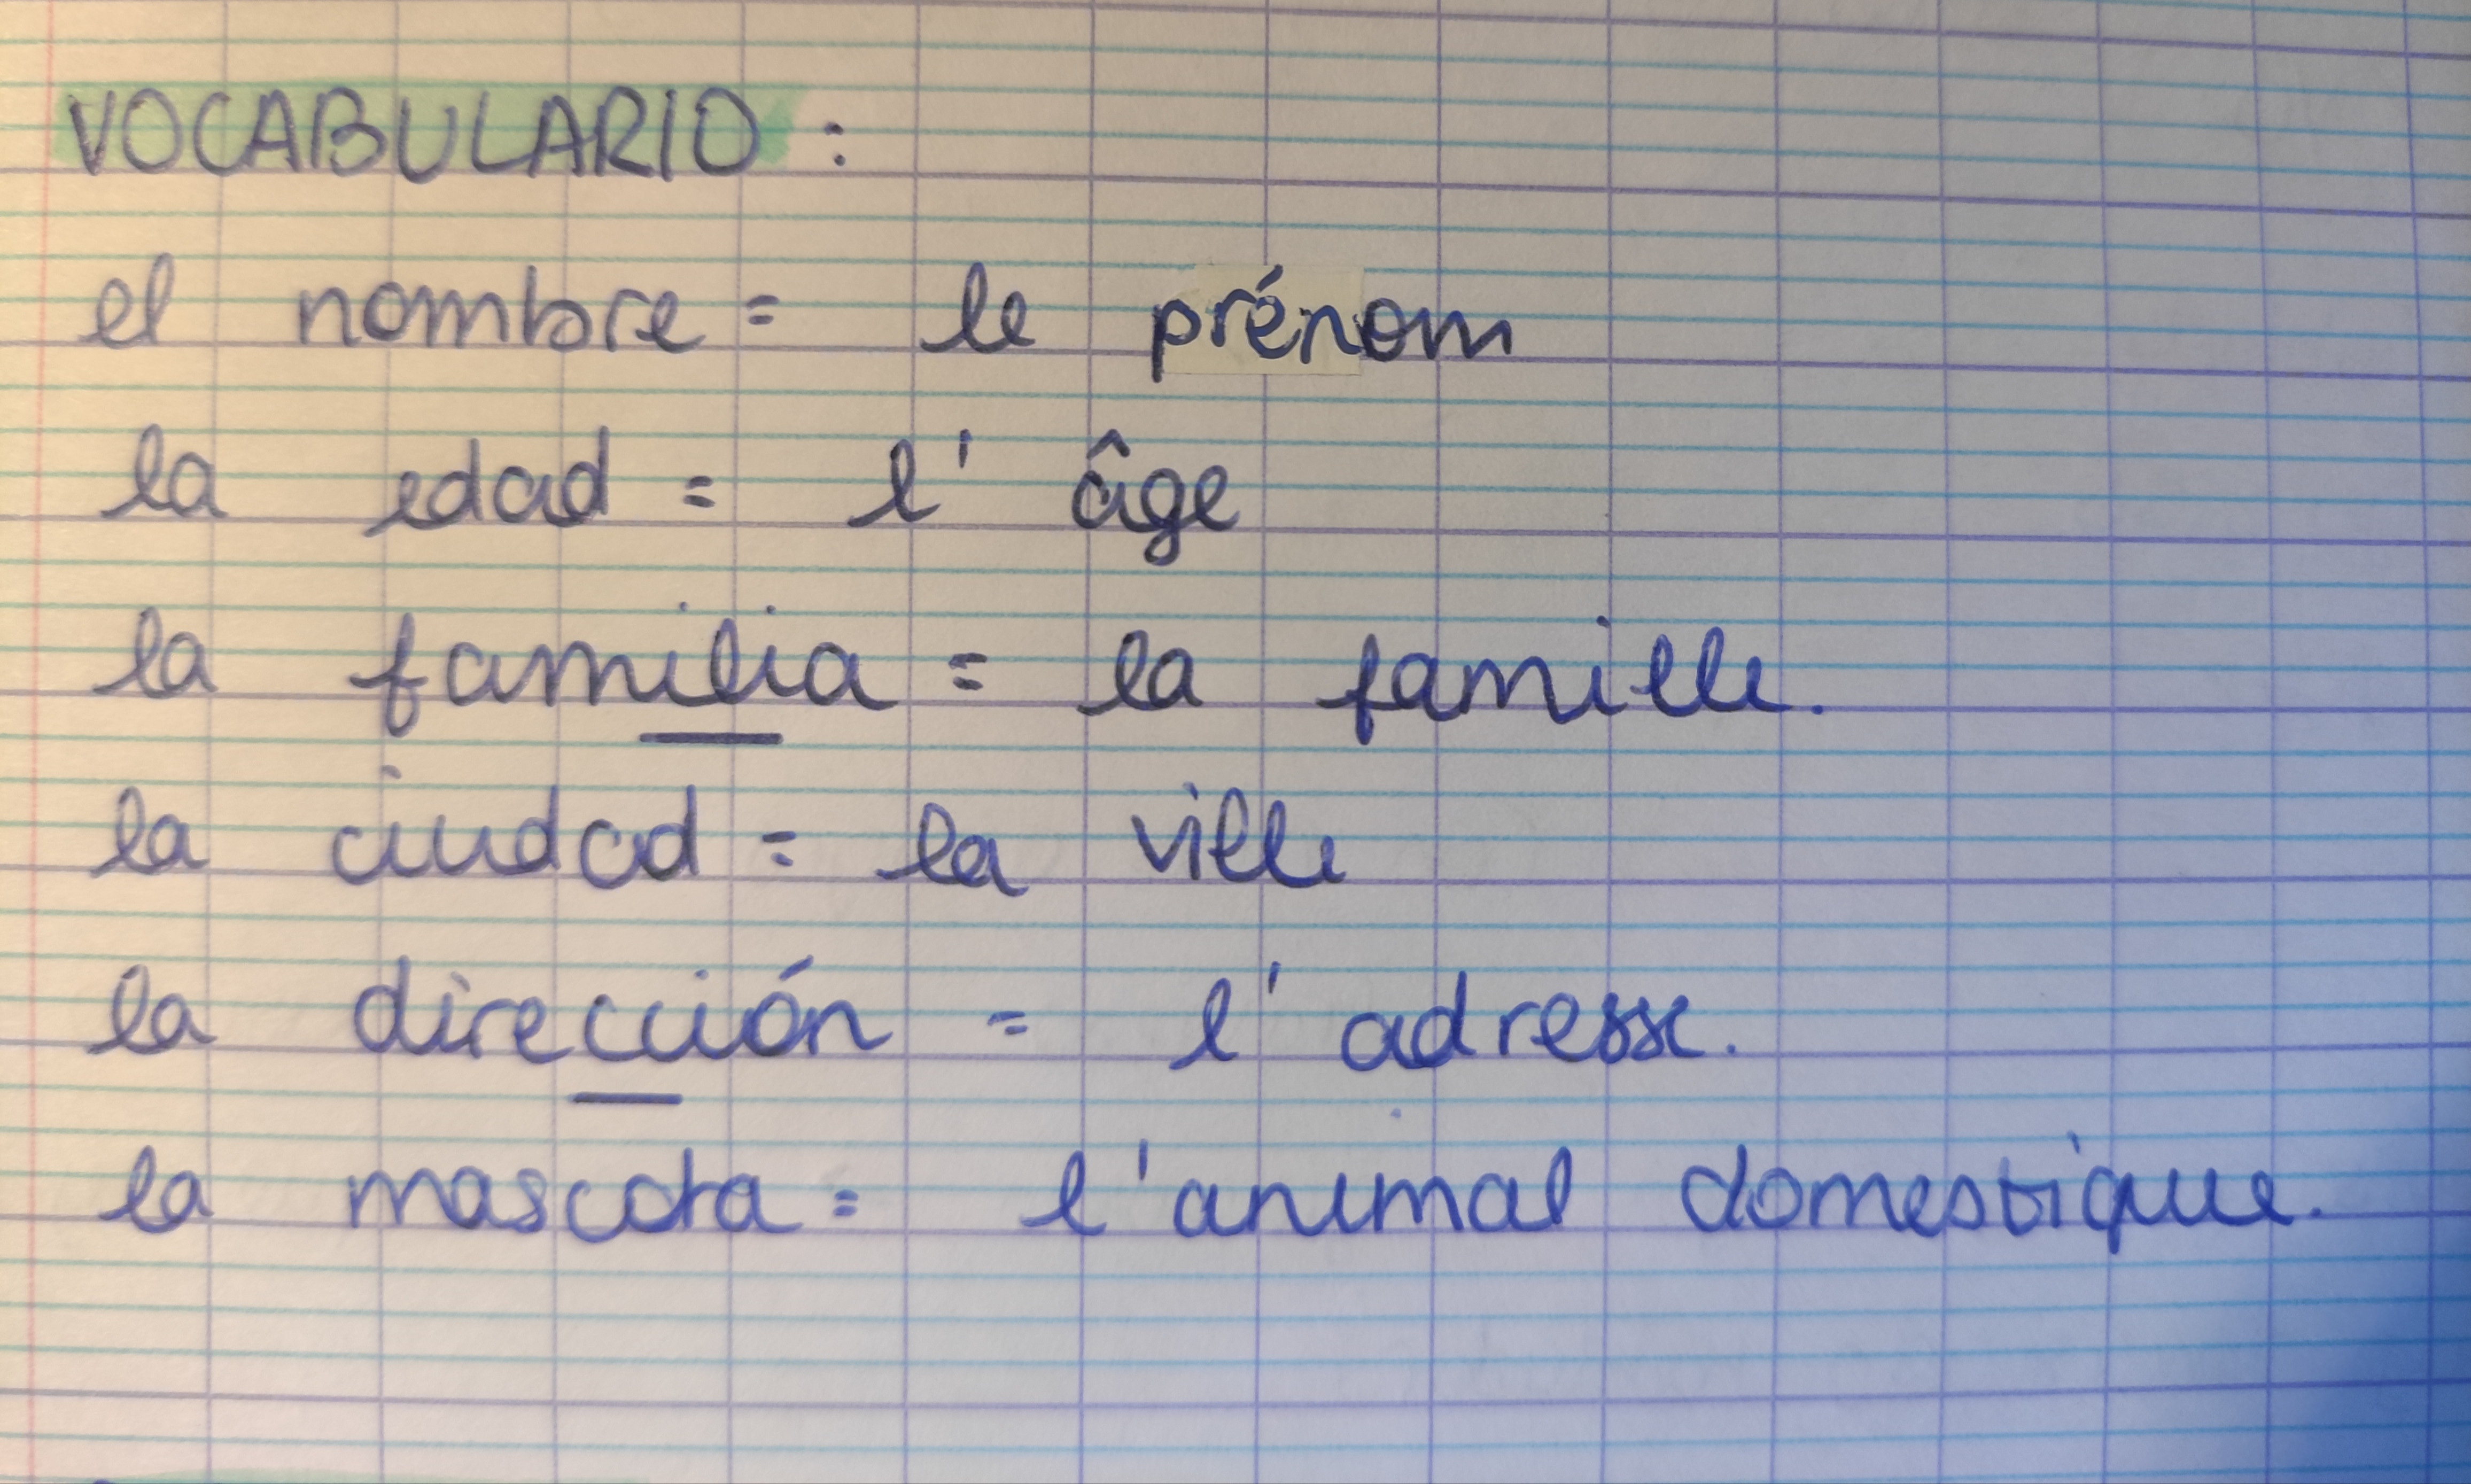 VOCABULARIO :
el nombre = le prénom
la edad = l' âge
la familia = la famille.
la ciudad = la ville
la dirección = l' adresse.
la mascota = l'animal domestique.